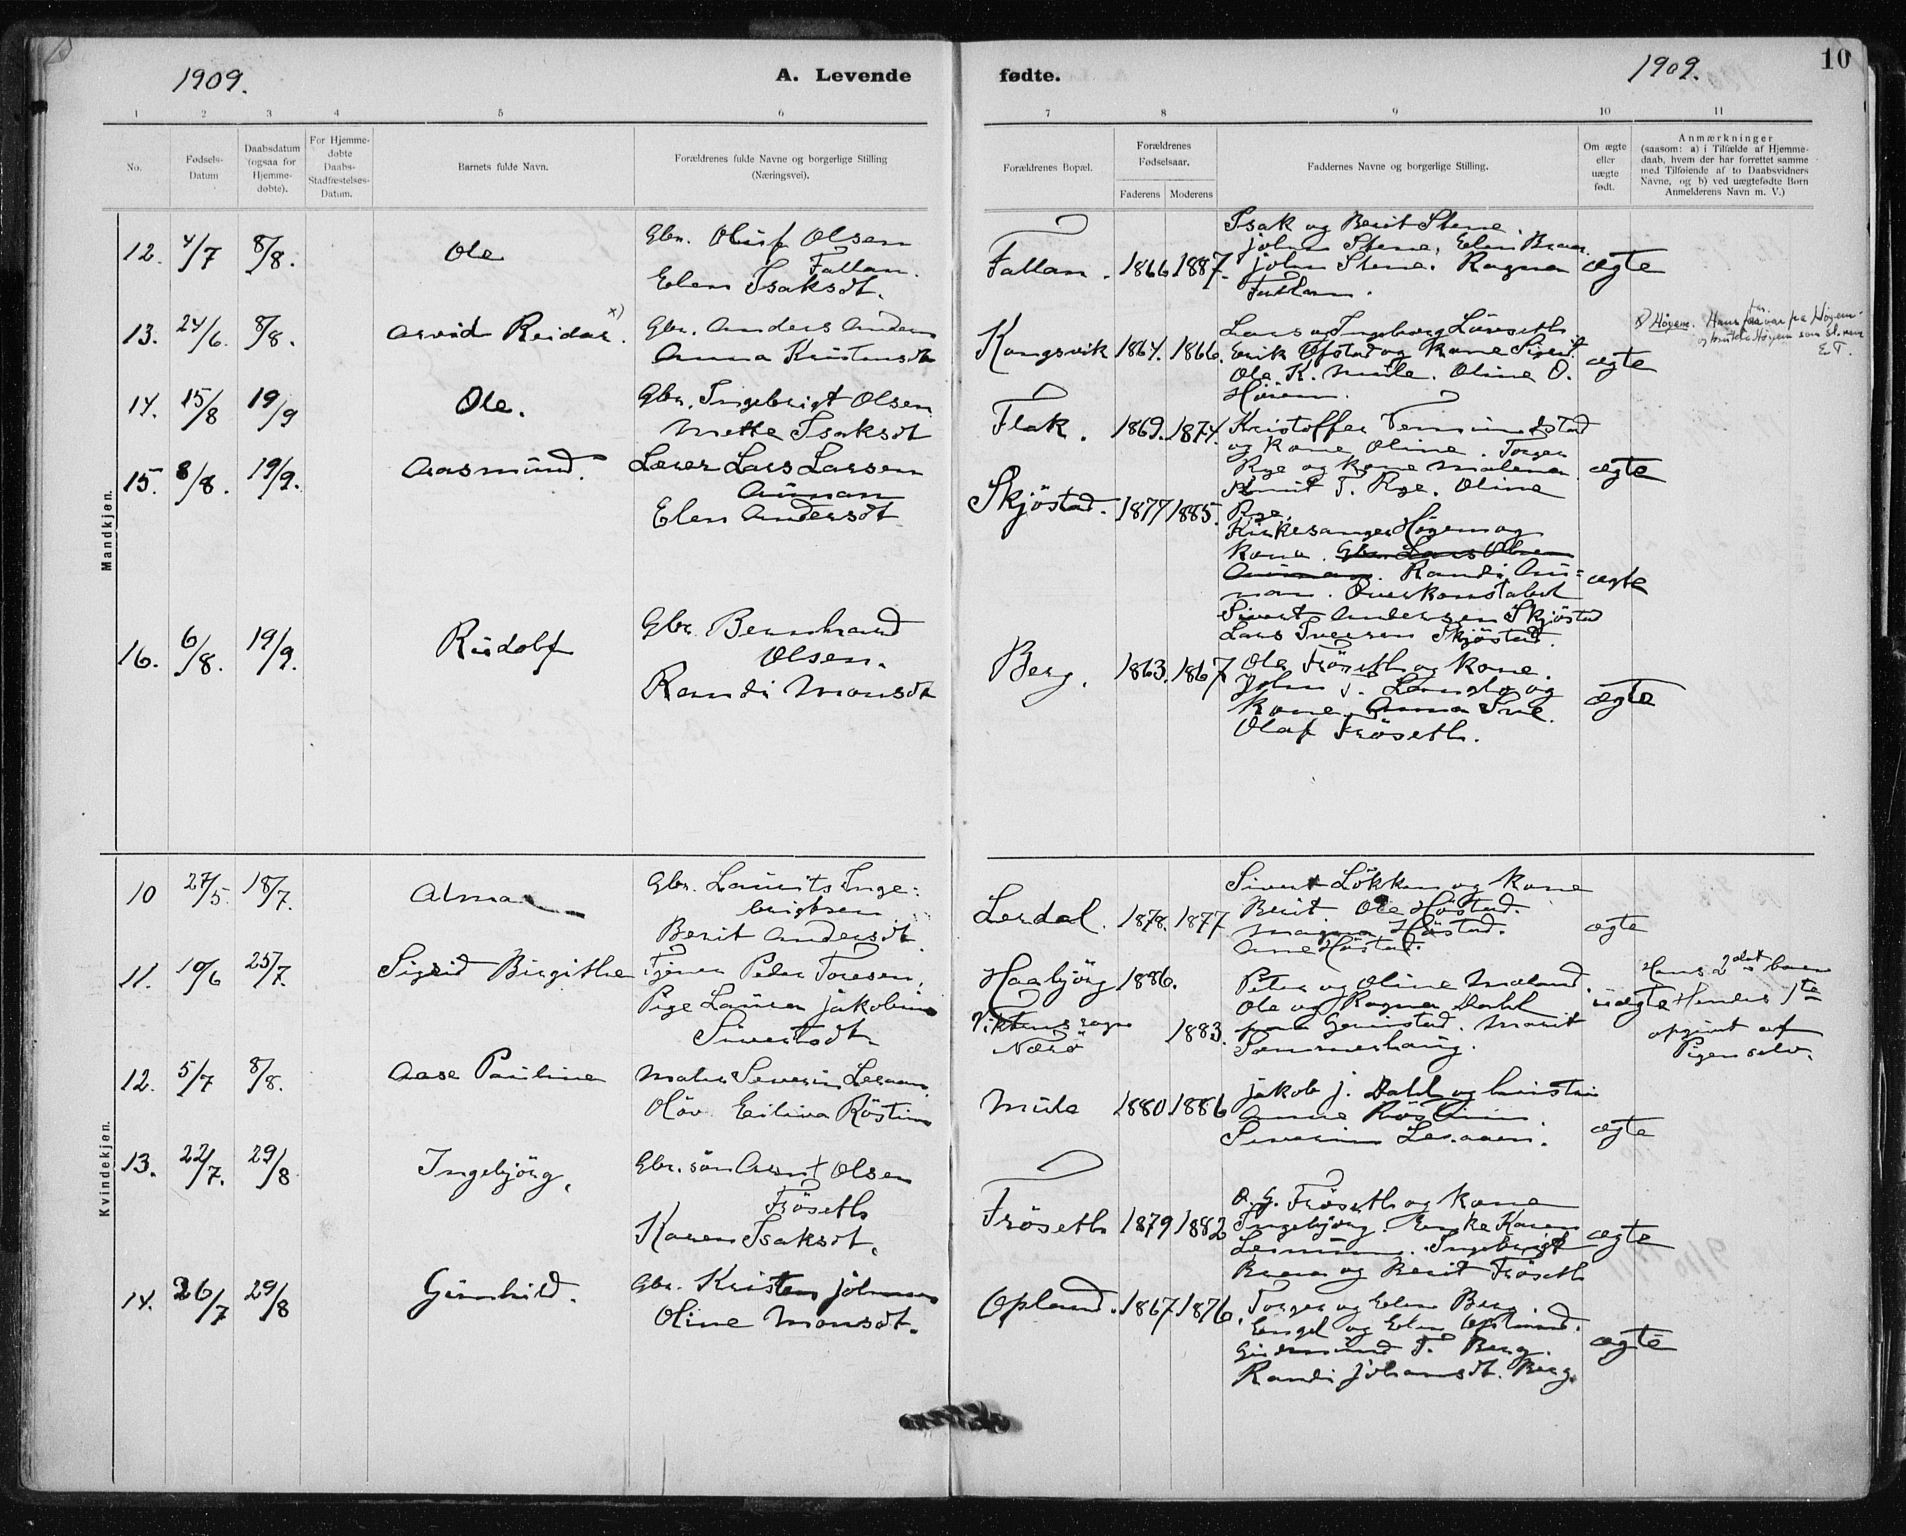 1909.
A. Levende
fødte.
1909.
10
1 2 3 4 5 6 7 8 9 10 11
No.
Fødsels-
Datum
Daabsdatum
(ogsaa for
Hjemme-
døbte).
For Hjemme-
døbte
Daabs-
Stadfæstelses-
Datum.
Barnets fulde Navn.
Forældrenes fulde Navne og borgerlige Stilling
(Næringsvei).
Forældrenes Bopæl.
Forældrenes
Fødselsaar.
Faderens Moderens
Faddernes Navne og borgerlige Stilling.
Om ægte
eller
uægte
født.
Anmærkninger
(saasom: a) i Tilfælde af Hjemme-
daab, hvem der har forrettet samme
med Tilføiende af to Daabsvidners
Navne, og b) ved uægtefødte Børn
Anmelderens Navn m. V.)
Mandkjøn.
12. 4/7 8/8. Ole
Gbr. Oluf Olsen
Fallan.
Elen Isaksdt.
Fallan. 1866 1887.
Isak og Berit Stene.
John Stene, Elen
John Stene. Ragna
Fallan.
ægte
13. 24/6. 8/8. Arvid Reidar. x)
Gbr. Anders
Anna Kristensdt
Kongsvik 1864. 1866.
Lars og Ingeborg Lövseth
Erik Ofstad og Kone Sigrid
Ole K. Mule. Oline O.
ægte
x) Høyem.
E.T.
14. 15/8 19/9 Ole.
Gbr. Ingebrigt Olsen
Mette Isaksdt
Flak. 1869. 1874.
Kristoffer
og Kone Oline. Torger
Rye og Kone Malena
T. Rye. Oline
Rye.
ægte
15. 8/8. 19/9. Aasmund.
Lærer Lars Larsen
Aunan
Elen Andersdt.
Skjöstad. 1877 1885.
Kirkesanger Høyem og
Kone. Gbr. Lars Olsen
Aunan. Randi Au=
nan. Overkonstabel
Sivert Andersen Skjöstad
Lars Iversen Skjöstad.
ægte
16. 6/8. 19/9. Rudolf
Gbr. Bernhard
Olsen.
Randi Monsdt
Berg. 1863. 1867
Ole Fröseth og Kone.
John T. Langlo og
Kone. Anna
Olaf Fröseth.
ægte
Kvindekjøn.
10 27/5. 18/7. Alma
Gbr. Laurits Inge=
brigtsen
Berit Andersdt.
Lerdal. 1878. 1877
Sivert Lökken og Kone
Berit. Ole Höstad.
Magna Höstad.
Ane Höstad.
ægte
11. 10/6 25/7. Sigrid Birgithe
Tjener Peder Toresen,
Pige Laura Jakobine
Sivertsdt.
Haabjörg 1886.
Viktens sogn
Nærö 1883.
Peter og Oline
Ole og Ragna Dahl
Marit
Sommerhaug.
uægte
Hans 2det barn
Hendes 1te
opgivet af
Pigen selv.
12. 5/7 8/8. Aase Pauline
Maler Severin Leraan.
Olöv Eilina Röstum
Mule 1880 1886
Jakob J. Dahl og hustru
Anne Röstum.
Severin Leraaen.
ægte
13. 22/7. 29/8 Ingebjörg.
Gbr.sön Arnt Olsen
Fröseth
Karen Isaksdt.
Fröseth 1879 1882
O. G. Fröseth og Kone
Ingebjörg. Enke Karen
Ingebrigt
og Berit Fröseth
ægte
14. 26/7 29/8 Gunhild.
Gbr. Kristen Johnsen
Oline Monsdt.
Opland. 1867 1876.
Torger og Elen Berg
Engel og Elen Opland.
Gudmund T. Berg.
Randi Johansdt. Berg.
ægte